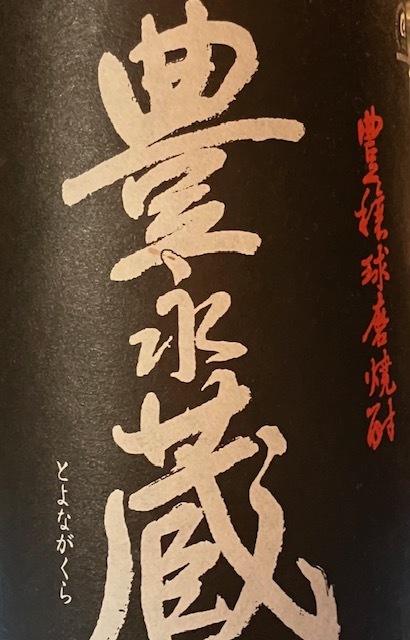 豊穣球磨焼酎
豊永蔵
とよながくら